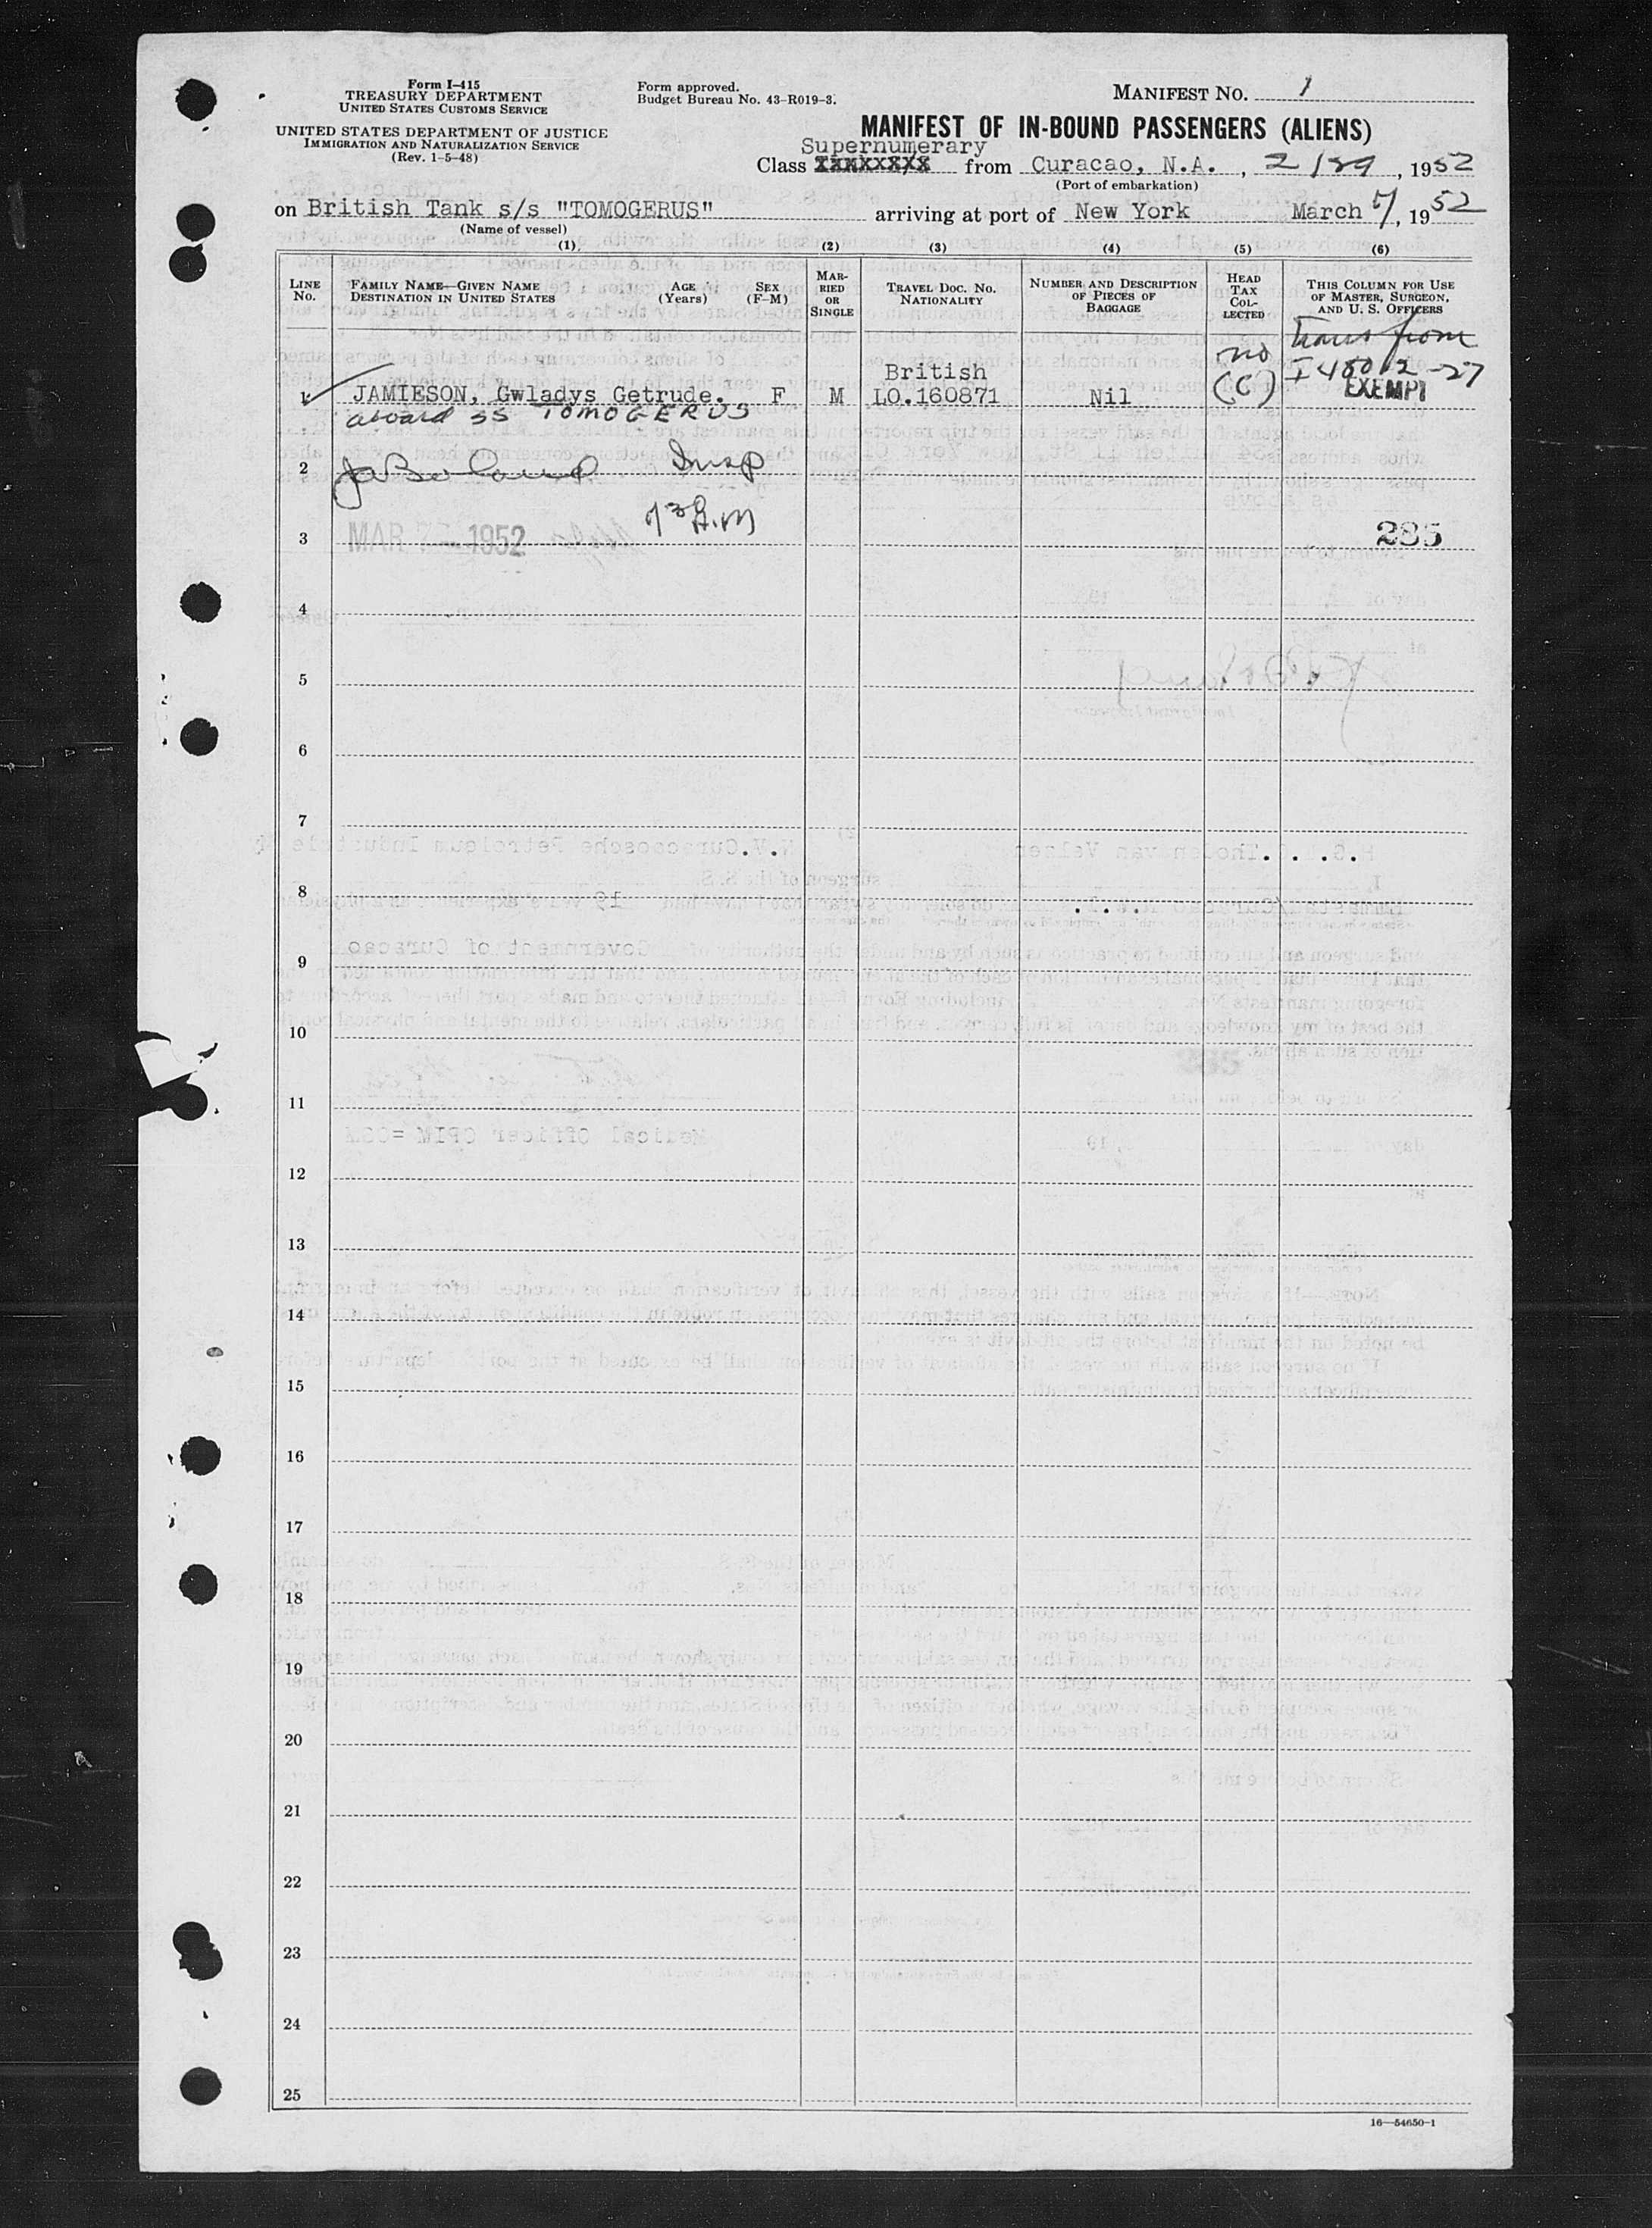 Form I-415
TREASURY DEPARTMENT
UNITED STATES CUSTOMS SERVICE
UNITED STATES DEPARTMENT OF JUSTICE
IMMIGRATION AND NATURALIZATION SERVICE
(Rev. 1-5-48)
Form approved.
Budget Bureau No. 43-R019-3.
MANIFEST NO. 1
MANIFEST OF IN-BOUND PASSENGERS (ALIENS)
Supernumerary
Class from Curacao, N.A. , 2/29, 1952
(Port of embarkation)
on British Tank s/s "TOMOGERUS" arriving at port of New York March 7, 1952
(Name of vessel)
(1) (2) (3) (4) (5) (6)
LINE No. FAMILY NAME—GIVEN NAME DESTINATION IN UNITED STATES AGE (Years) SEX (F-M) MARRIED OR SINGLE TRAVEL DOC. NO. NATIONALITY NUMBER AND DESCRIPTION OF PIECES OF BAGGAGE HEAD TAX COLLECTED THIS COLUMN FOR USE OF MASTER, SURGEON, AND U. S. OFFICERS
Trans from
no I 480 12-27
British
1 JAMIESON, Gwladys Getrude. F M LO.160871 Nil (C) EXEMPT
aboard SS TOMOGERUS
2 Insp
7 30 A.M
3 MAR 7 - 1952 285
4
5
6
7
8
9
10
11
12
13
14
15
16
17
18
19
20
21
22
23
24
25
16—54650-1